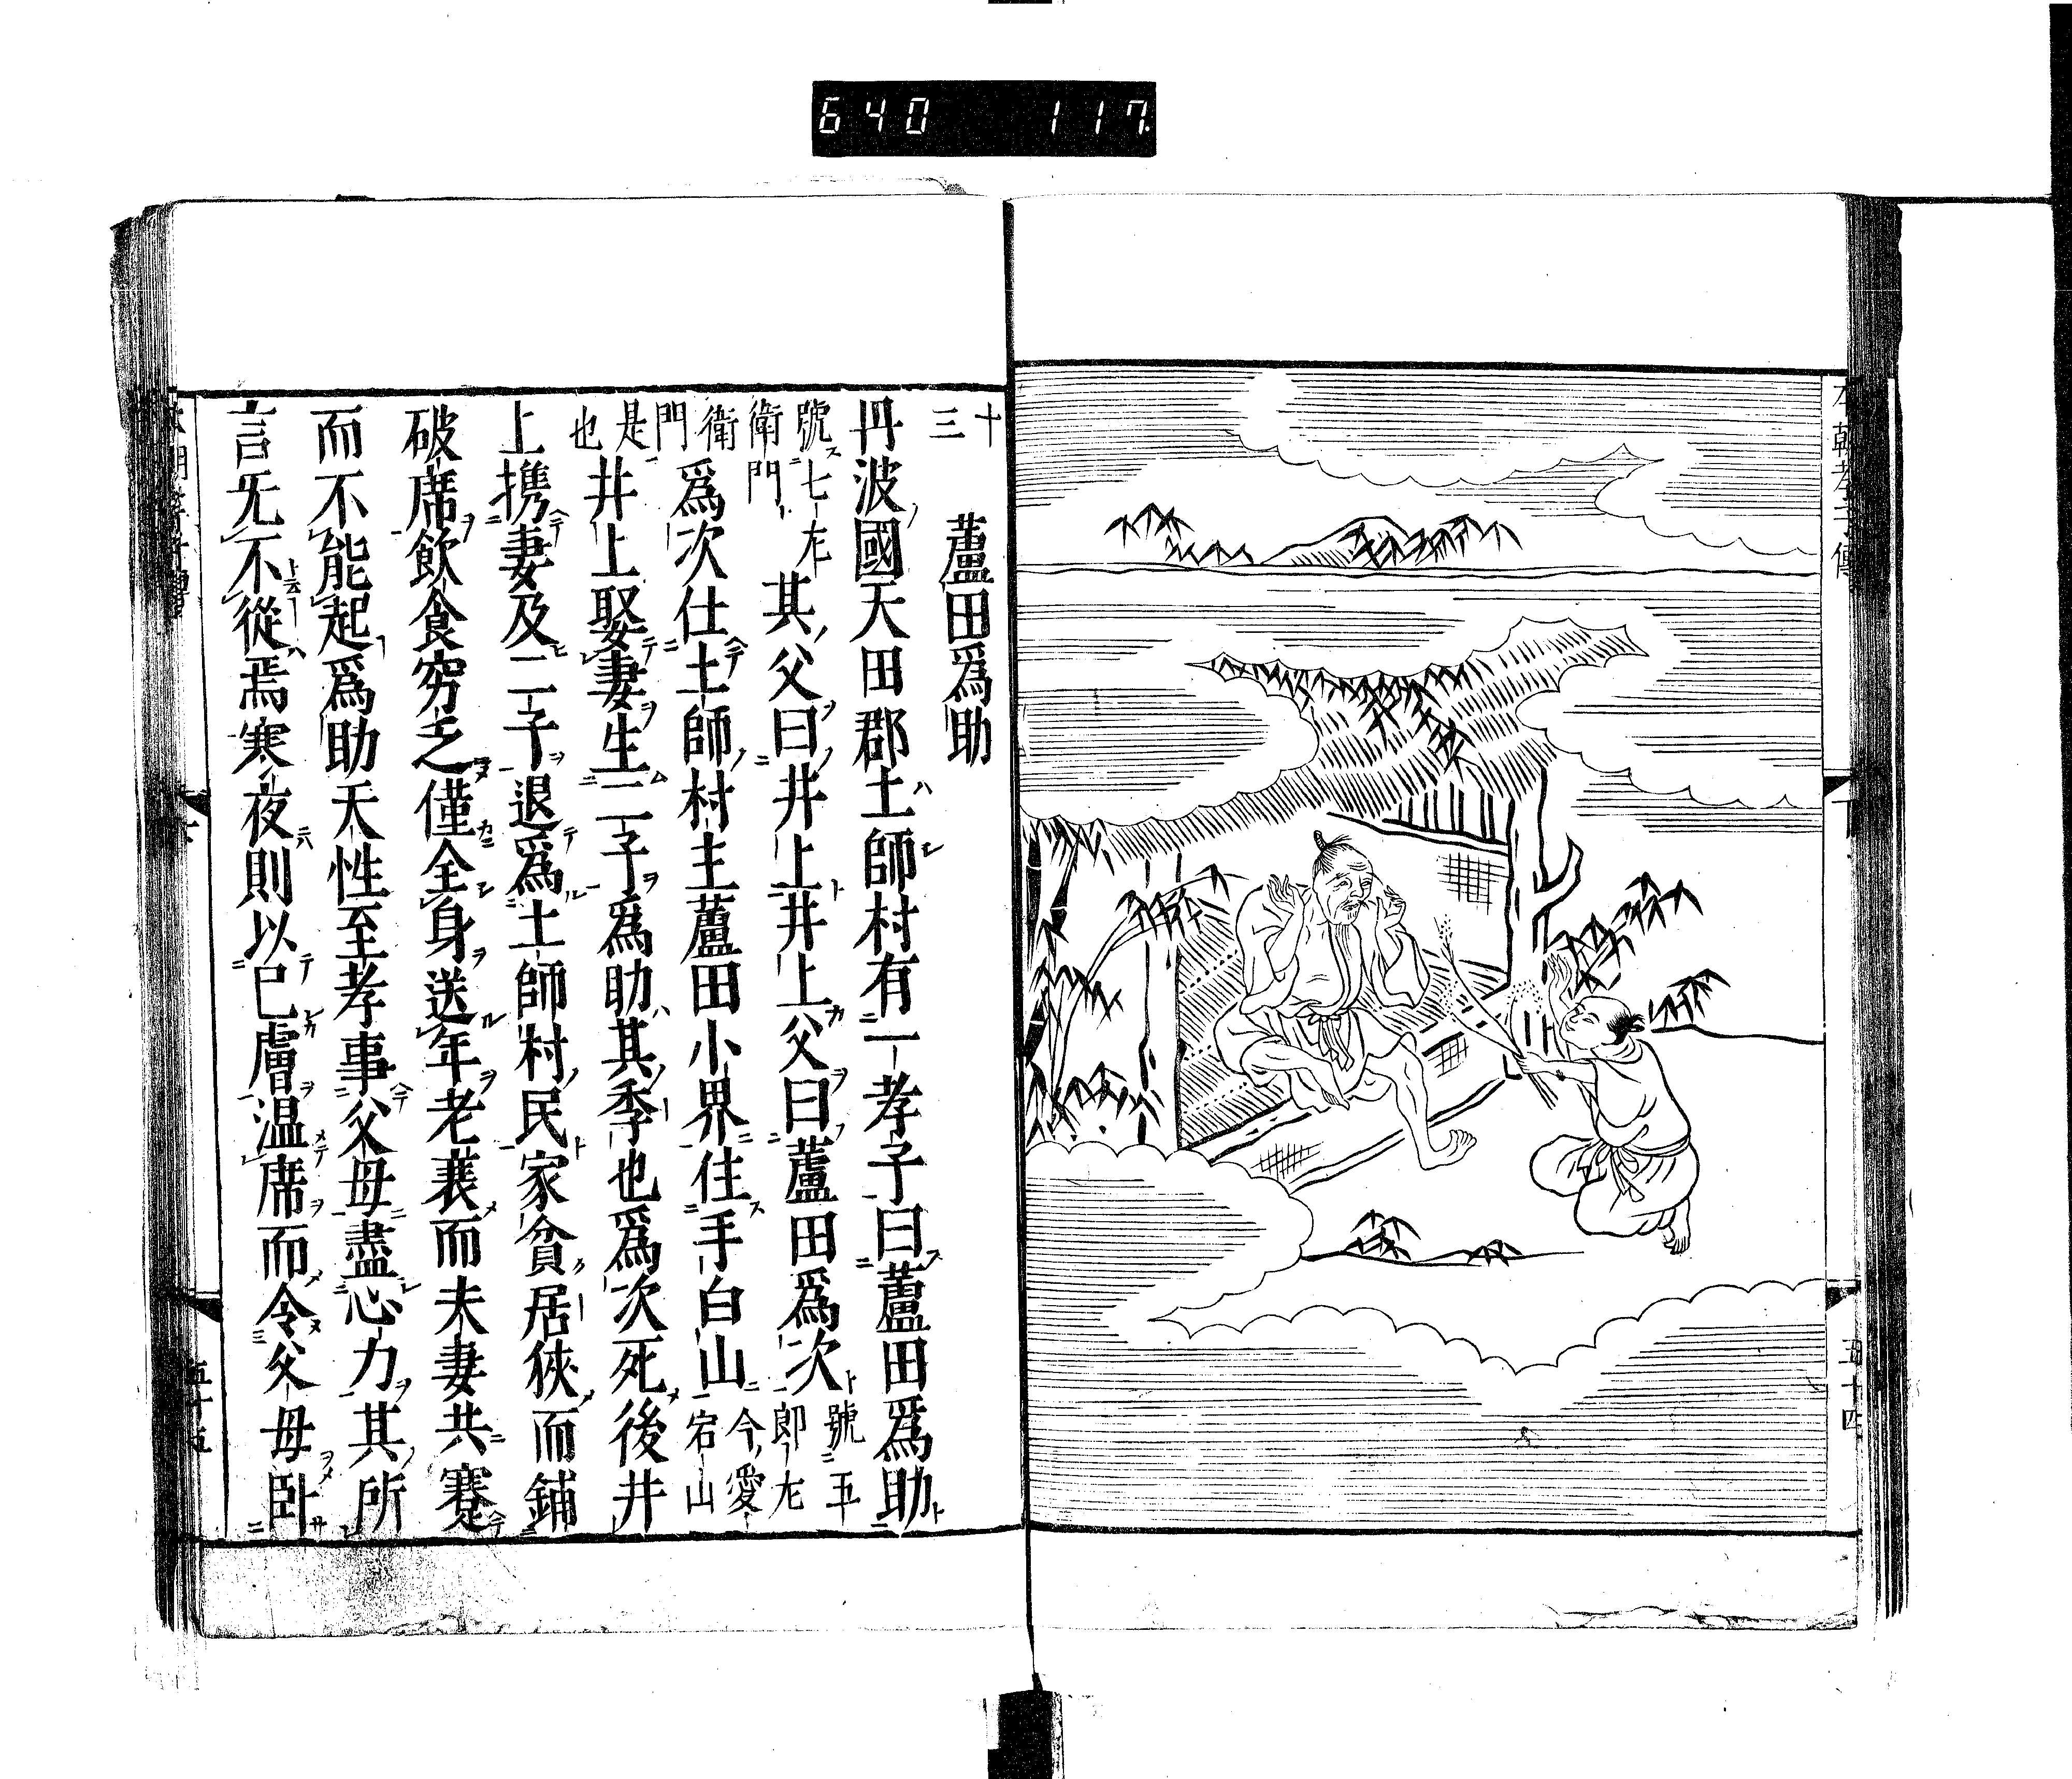 640 117
本朝孝子傳
五十四
十三
蘆田爲助
丹波國天田郡土師村有一孝子曰蘆田爲助
號七左衛門其父曰井上井上父曰蘆田爲次號五郎左
衛門爲次仕土師村主蘆田小界住手白山今愛宕山
是也井上娶妻生二子爲助其季也爲次死後井
上携妻及二子退爲土師村民家貧居狹而鋪
破席飲食窮乏僅全身送年老衰而夫妻共蹇
而不能起爲助天性至孝事父母盡心力其所
言无不從焉寒夜則以己膚温席而令父母臥
五十五